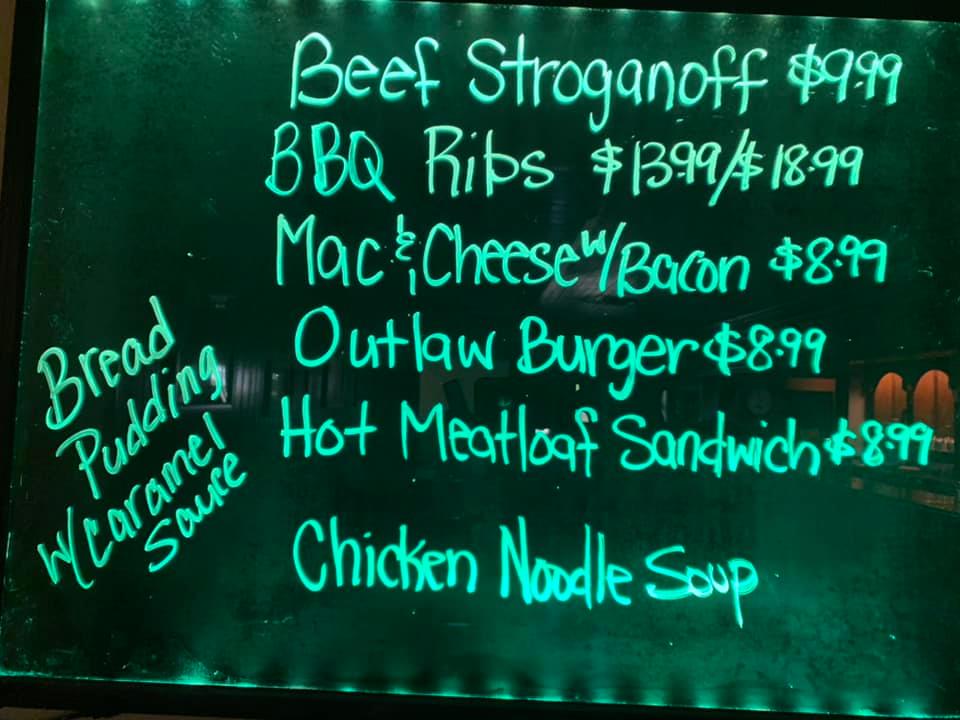 Beef Stroganoff $9.99
BBQ Ribs $13.99/$18.99
Mac & Cheese w/Bacon $8.99
Outlaw Burger $8.99
Hot Meatloaf Sandwich $8.99
Chicken Noodle Soup
Bread
Pudding
w/Caramel
Sauce